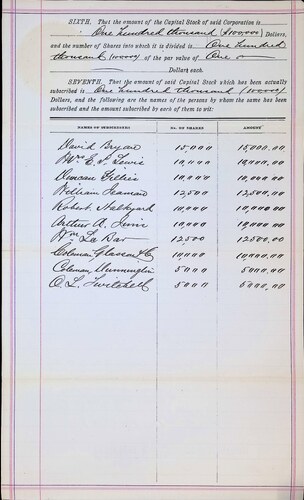 SIXTH, That the amount of the Capital Stock of said Corporation is
One hundred thousand ($100000) Dollars,
and the number of Shares into which it is divided is One hundred
thousand 100000) of the par value of One
Dollars each.
SEVENTH, That the amount of said Capital Stock which has been actually
subscribed is One hundred thousand (100000)
Dollars, and the following are the names of the persons by whom the same has been
subscribed and the amount subscribed by each of them to wit:
NAMES OF SUBSCRIBERS No. OF SHARES AMOUNT
David Bryant 15,000 15,000.00
Mrs. E. S. Lewis 10,000 10,000.00
Duncan Gillis 10,000 10,000.00
William 12,500 12,500.00
Robert Halkyard 10,000 10,000.00
Arthur A. 10,000 10,000.00
Wm La Bar 12500 12500.00
Coleman Glasson & Co 10,000 10,000.00
Coleman 5000 5000.00
O. L. Twitchell 5000 5000.00